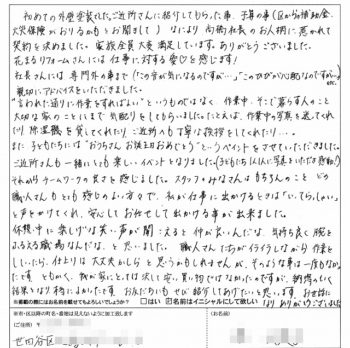 初めての外壁塗装でしたご近所さんに紹介してもらった事、予算の事(区から補助金、
火災保険がおりるかもとお聞きして)なにより向後社長のお人柄に惹かれて
契約を決めました。家族全員大変満足しています。ありがとうございました。
花まるリフォームさんには仕事に対する愛ひを感じます!
社長さんには専門外の事まで(「この音が気になるのですが…」「このひびが心配なのですが…」
etc.
親切にアドバイスをいただきました。
"言われた通りに作業をすればいい"というものではなく、作業中、そこで暮らす人のこと
大切な家のことにまで気配りをしてもらいました。たとえば、作業中の写真を送ってくれ
たり除湿機を貸してくれたりご近所へも丁寧な挨拶をしてくれたり…。
また子どもたちには"おうちさんお誕生日おめでとう"というイベントをさせていただきました。
ご近所さんも一緒にとても楽しいイベントとなりました。(子どもたち1人1人に写真をいただき感動!)
それからチームワークの良さを感じました。スタッフのみなさんはもちろんのことどの
職人さんもとても感じのよい方々で、私が仕事に出かけるときは「いってらっしゃい」
と声をかけてくれ、安心してお任せして出かける事が出来ました。
休憩中に楽しげな笑い声が聞こえると仲が良いんだな、気持ち良く腕を
ふるえる職場なんだな、と思いました。職人さんたちがイライラしながら作業を
していたら、仕上りは大丈夫かしらと思うかもしれませんが、そのような事は一度もなかっ
たです。ともかく、我が家にとっては決して安い買い物ではなかったのですが、納得のいく
結果となり格にもよかったです。お友だちにもぜひ紹介してあげたいと思います。お世話に
なりありがとうございました
※掲載の際にはお名前を載せてもよろしいでしょうか □はい ☑名前はイニシャルにして欲しい
※市・区以降の町名・番地は見えないように加工致します
(ご住所) 〒
(お名前)
世田谷区